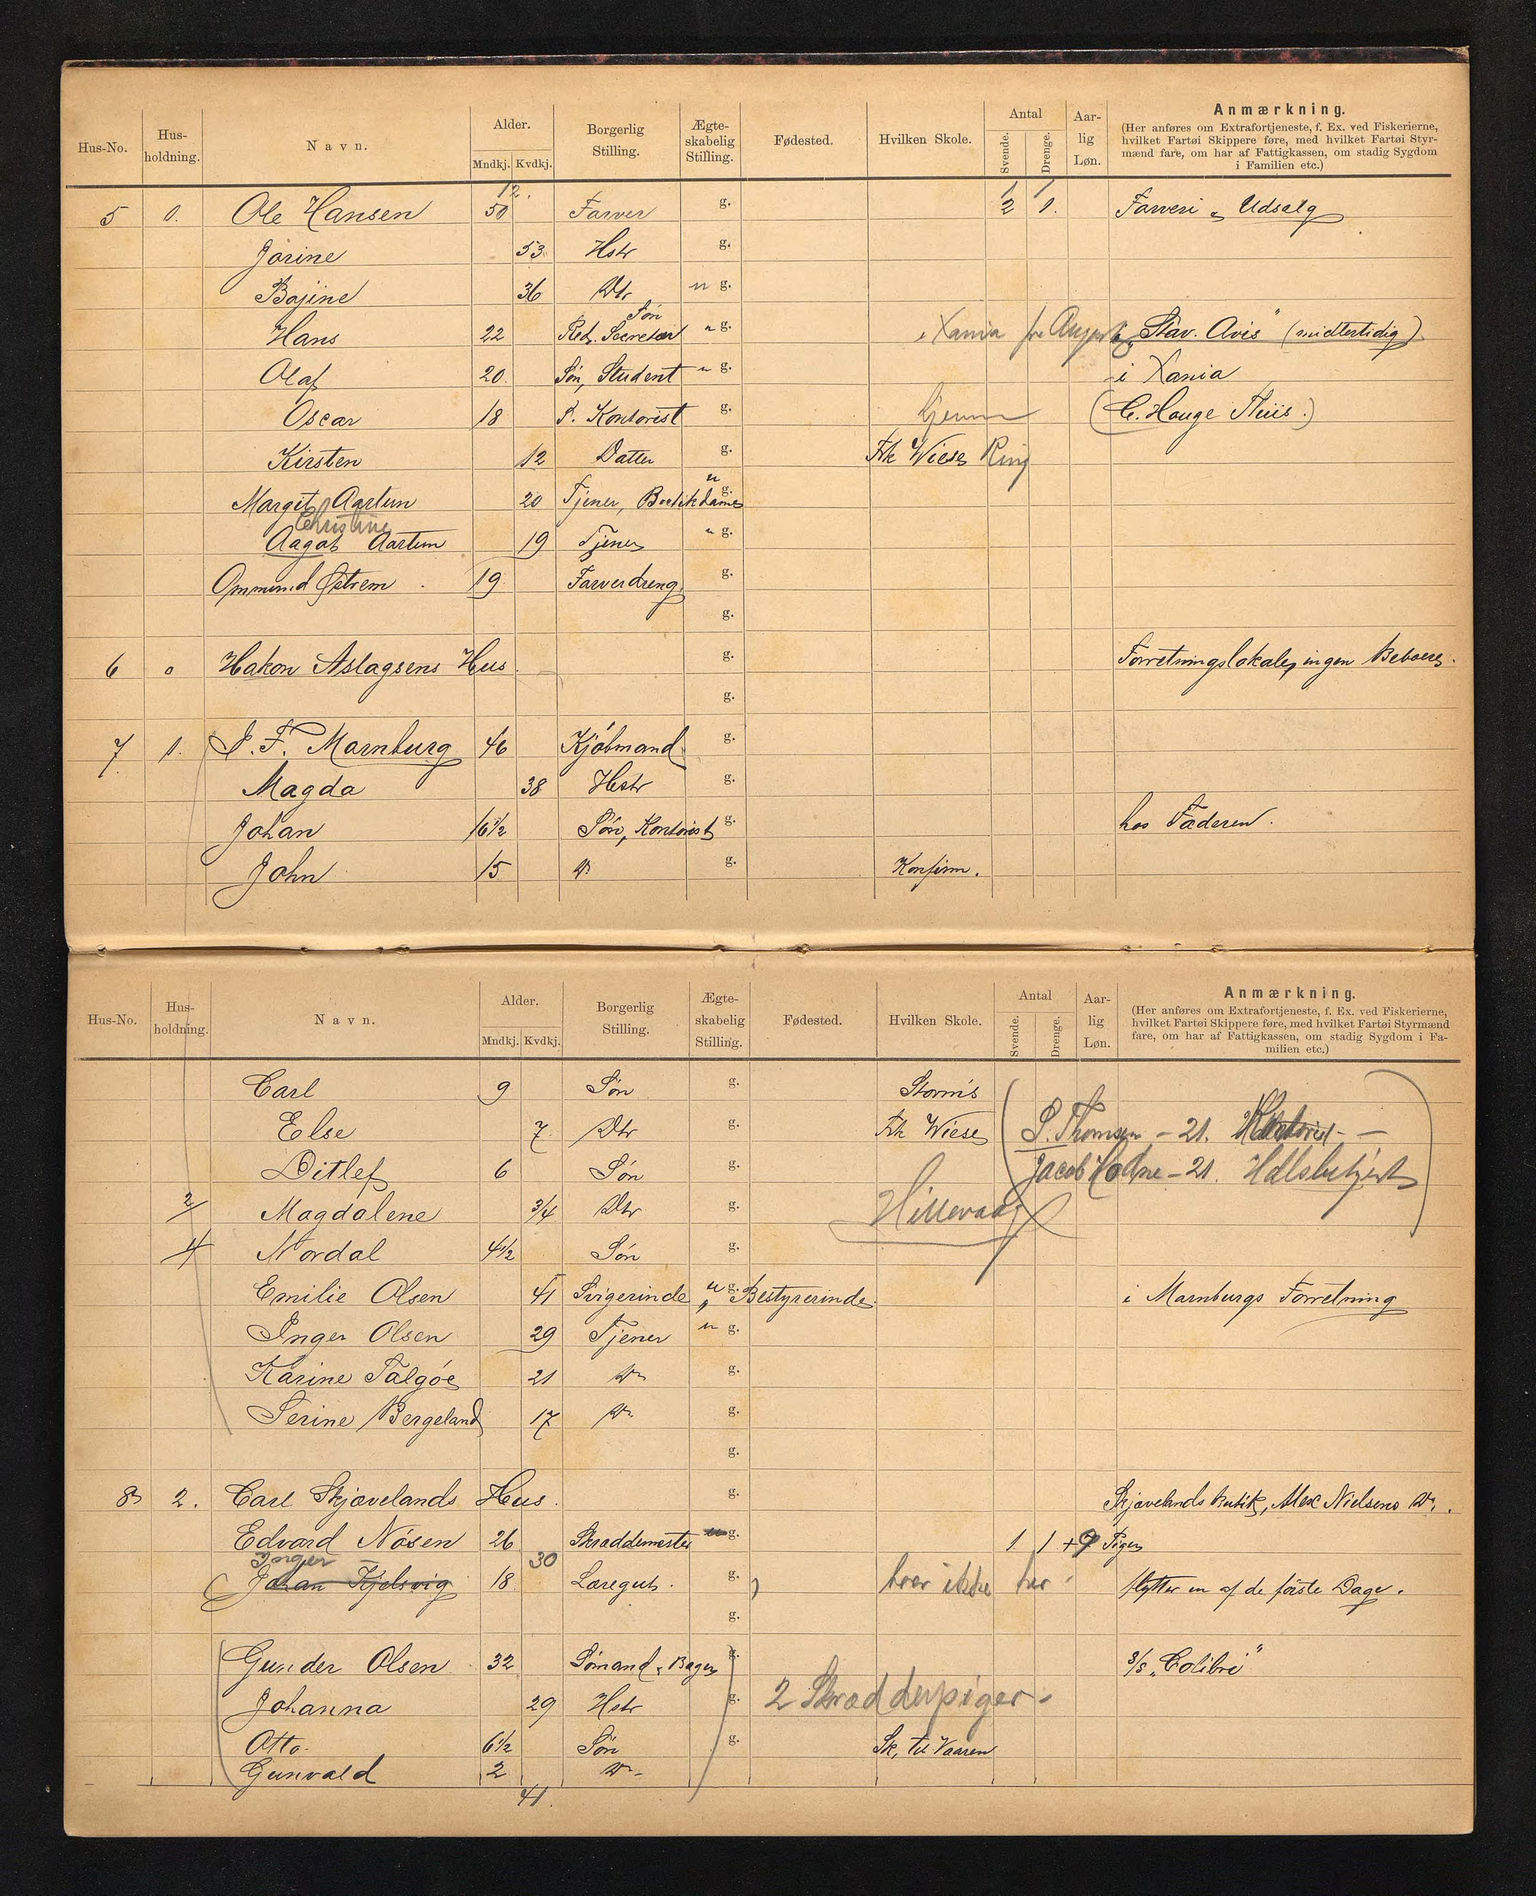 Hus-No. Hus-holdning. Navn. Alder. Mndkj. Kvdkj. Borgerlig Stilling. Ægte-skabelig Stilling. Fødested. Hvilken Skole. Antal Svende. Drenge. Aar-lig Løn. Anmærkning.
(Her anføres om Extrafortjeneste, f. Ex. ved Fiskerierne, hvilket Fartøi Skippere føre, med hvilket Fartøi Styr-mænd fare, om har af Fattigkassen, om stadig Sygdom i Familien etc.)
12. 1 1
5 1. Ole Hansen 50 Farver g. 2 1. Farveri & Udsalg
Jorine 53 Hstr g.
Bojine 36 Dtr u g.
Søn
Hans 22 Red. Secretær u g. i Xania fra August i "Stav. Avis" (midtertidig)
Olaf 20 Søn, Student u g. i Xania
Oscar 18 S. Kontorist g. hjemme (C. Houge Thiis.)
Kirsten 12 Datter g. Frk Wieses Ring
Margit Aartun 20 Tjener, Butikdame u g.
Christine
Aagot Aartun 19 Tjener u g.
Ommund Østrem 19 Farverdreng g.
g.
6 0 Hakon Aslagsens Hus. g. Forretningslokale, ingen Beboere.
g.
7 1. J. F. Marnburg 46 Kjøbmand g.
Magda 38 Hstr g.
Johan 16½ Søn, Kontorist g. hos Faderen.
John 15 D g. Konfirm.
Hus-No. Hus-holdning. Navn. Alder. Mndkj. Kvdkj. Borgerlig Stilling. Ægte-skabelig Stilling. Fødested. Hvilken Skole. Antal Svende. Drenge. Aar-lig Løn. Anmærkning.
(Her anføres om Extrafortjeneste, f. Ex. ved Fiskerierne, hvilket Fartøi Skippere føre, med hvilket Fartøi Styrmænd fare, om har af Fattigkassen, om stadig Sygdom i Fa-milien etc.)
Carl 9 Søn g. Storm's
Else 7 Dtr g. Frk Wieses (S. Thomsen - 21. Kontorist -
Ditlef 6 Søn g. Jacob Hodne - 21. Hdlsbetjent)
2 Magdalene 3/4 Dtr g. Hillevaag
4 Nordal 4½ Søn g.
Emilie Olsen 41 Svigerinde u g. Bestyrerinde i Marnburgs Forretning
Inger Olsen 29 Tjener u g.
Karine Talgøe 21 D g.
Serine Bergeland 17 D g.
g.
8 2. Carl Skjævelands Hus. g. Skjævelands Butik, Alex Nielsens D.
Edvard Nøsen 26 Skræddermester u g. 1 1 +9 Piger
Torger 30
(Johan Kjelsvig 18 Læregut. g. ) bor ikke her. flytter en af de første Dage.
g.
(Gunder Olsen 32 Sømand, Bager g. S/S "Colibri"
Johanna 29 Hstr g. 2 Skrædderpiger.
Otto 6½ Søn g. Sk. til Vaaren
Gunvald 2 D
41.